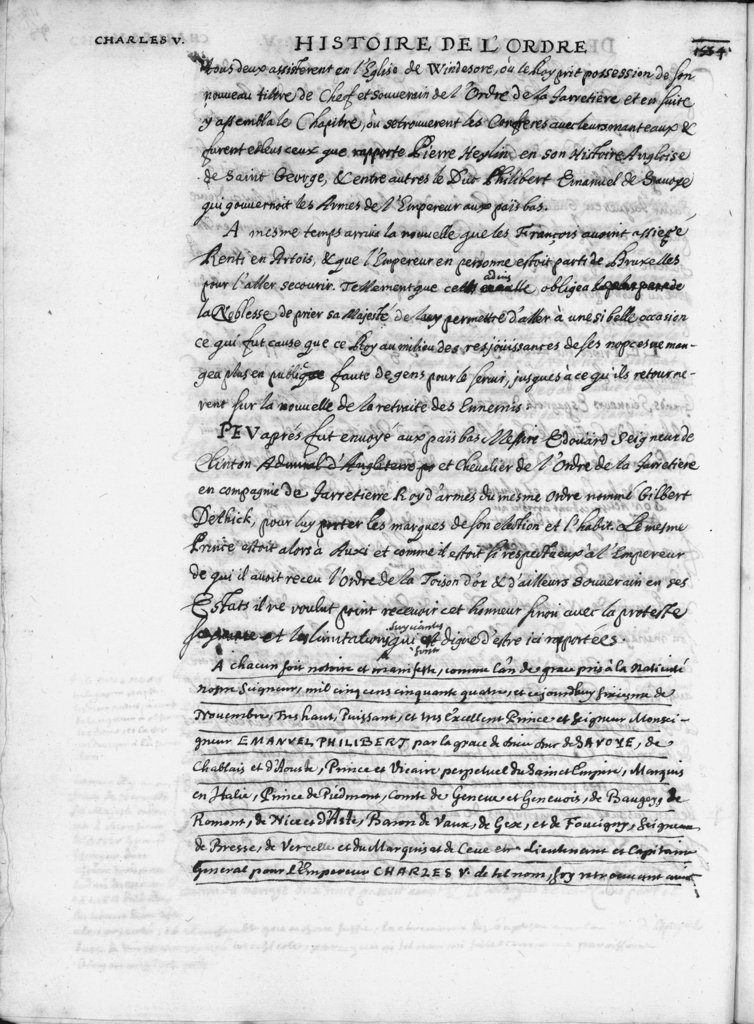 CHARLES V. HISTOIRE DE L'ORDRE 1554.
Tous deux assisterent en l'Eglise de Windesore, où le Roy prit possession de son
nouveau tiltre de Chef et souverain de l'Ordre de la Jarretiere et en suite
y assembla le Chapitre, où se trouverent les Confreres avec leurs manteaux &
furent esleus ceux que rapporte Pierre Heylin en son Histoire Angloise
de Saint George, & entre autres le Duc Philibert Emanuel de Savoye
qui gouvernoit les Armes de l'Empereur aux païs bas.
A mesme temps arriva la nouvelle que les François avoint assiegé
Renti en Artois, & que l'Empereur en personne estoit parti de Bruxelles
pour l'aller secourir. Tellement que cet advis obligea
la Noblesse de prier sa Majesté de luy permettre d'aller à une si belle occasion
ce qui fut cause que ce Roy au milieu des resjouissances de ses nopces ne man-
gea plus en public faute de gens pour le servir, jusques à ce qu'ils retourne-
rent sur la nouvelle de la retraite des Ennemis
PEV aprés fut envoyé aux païs bas Messire Edouard Seigneur de
Clinton Admiral d'Angleterre et Chevalier de l'Ordre de la Jarretiere
en compagnie de Jarretierre Roy d'armes du mesme Ordre nommé Gilbert
Dethick, pour luy porter les marques de son election et l'habit. Le mesme
Prince estoit alors à Auxi et comme il estoit si respectueux à l'Empereur
de qui il avoit receu l'Ordre de la Toison d'or & d'ailleurs Souverain en ses
Estats il ne voulut point recevoir cet honneur sinon avec la proteste
et les limitations suyvantes qui sont digne d'estre ici rapportées.
A chacun soit notoire et manifeste, comme l'an de grace pris à la Nativité
nostre Seigneur, mil cinq cens cinquante quatre, et ce jourdhuy sixiesme de
Novembre, Tres haut, Puissant, et tres Excellent Prince et Seigneur Monsei-
gneur EMANVEL PHILIBERT par la grace de dieu duc de SAVOYE, de
Chablais et d'Aouste, Prince et Vicaire perpetuel du Sainct Empire, Marquis
en Italie, Prince de Piedmont, Comte de Geneve et Genevois, de Baugey, de
Romont, de Nice et d'Ast, Baron de Vaux, de Gex, et de Foucigny, Seigneur
de Bresse, de Vercelle et du Marquisat de Ceve etc. Lieutenant et Capitaine
General pour l'Empereur CHARLES V. de tel nom, soy retrouvant